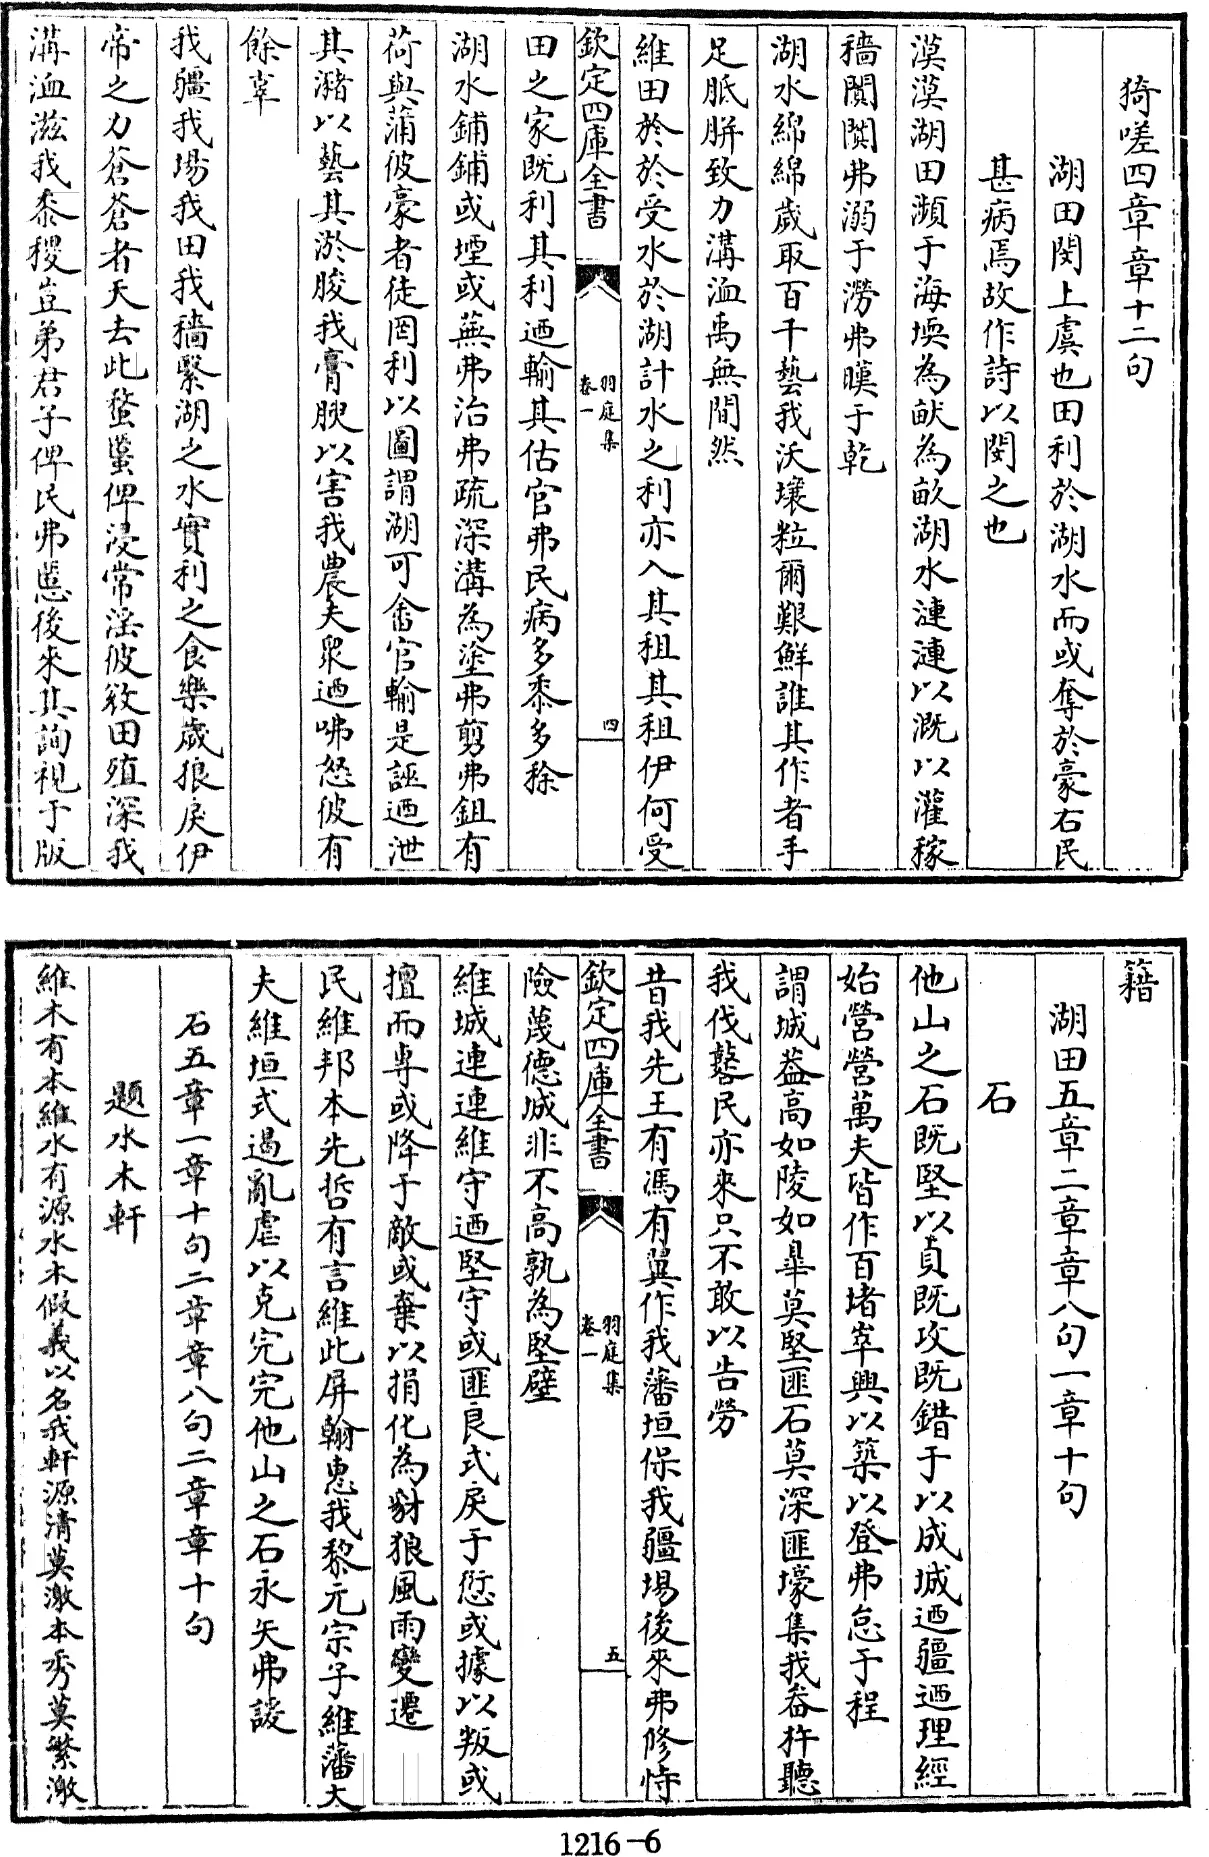 猗嗟四章章十二句
湖田閔上虞也田利於湖水而或奪於豪右民
甚病焉故作詩以閔之也
漠漠湖田瀕于海堧為畎為畝湖水漣漣以溉以灌稼
穡闐闐弗溺于澇弗暵于乾
湖水綿綿歲取百千藝我沃壤粒爾艱鮮誰其作者手
足胝胼致力溝洫禹無間然
維田於於受水於湖計水之利亦入其租其租伊何受
欽定四庫全書
羽庭集
卷一
四
田之家既利其利迺輸其估官弗民病多黍多稌
湖水鋪鋪或堙或蕪弗治弗疏深溝為塗弗剪弗鉏有
荷與蒲彼豪者徒罔利以圖謂湖可畬官輸是誣迺泄
其瀦以藝其淤朘我膏腴以害我農夫衆迺咈怒彼有
餘辜
我疆我場我田我穡繄湖之水實利之食樂歲狼戾伊
帝之力蒼蒼者天去此螯蠆俾浸常滛彼敚田殖深我
溝洫滋我黍稷豈弟君子俾民弗慝後來其詢視于版
籍
湖田五章二章章八句一章十句
石
他山之石既堅以貞既攻既錯于以成城迺疆迺理經
始營營萬夫皆作百堵崒興以築以登弗怠于程
謂城葢高如陵如臯莫堅匪石莫深匪壕集我畚杵聽
我伐鼛民亦來只不敢以告勞
昔我先王有馮有翼作我藩垣保我疆場後來弗修恃
欽定四庫全書
羽庭集
卷一
五
險蔑德城非不高孰為堅壁
維城連連維守迺堅守或匪良式戾于愆或據以叛或
擅而專或降于敵或棄以捐化為豺狼風雨變遷
民維邦本先哲有言維此屏翰惠我黎元宗子維藩大
夫維垣式遏亂虐以克完完他山之石永矢弗諼
石五章一章十句二章章八句二章章十句
題水木軒
維木有本維水有源水木假義以名我軒源清莫激本秀莫繁激
1216-6